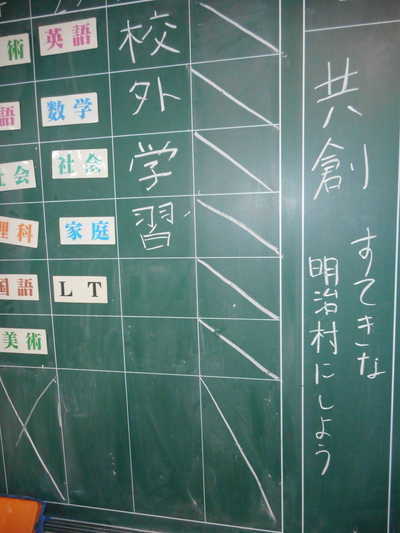 共創
すてきな
明治村にしよう
校外学習
英語
数学
社会
家庭
LT
術
語
社会
理科
国語
美術